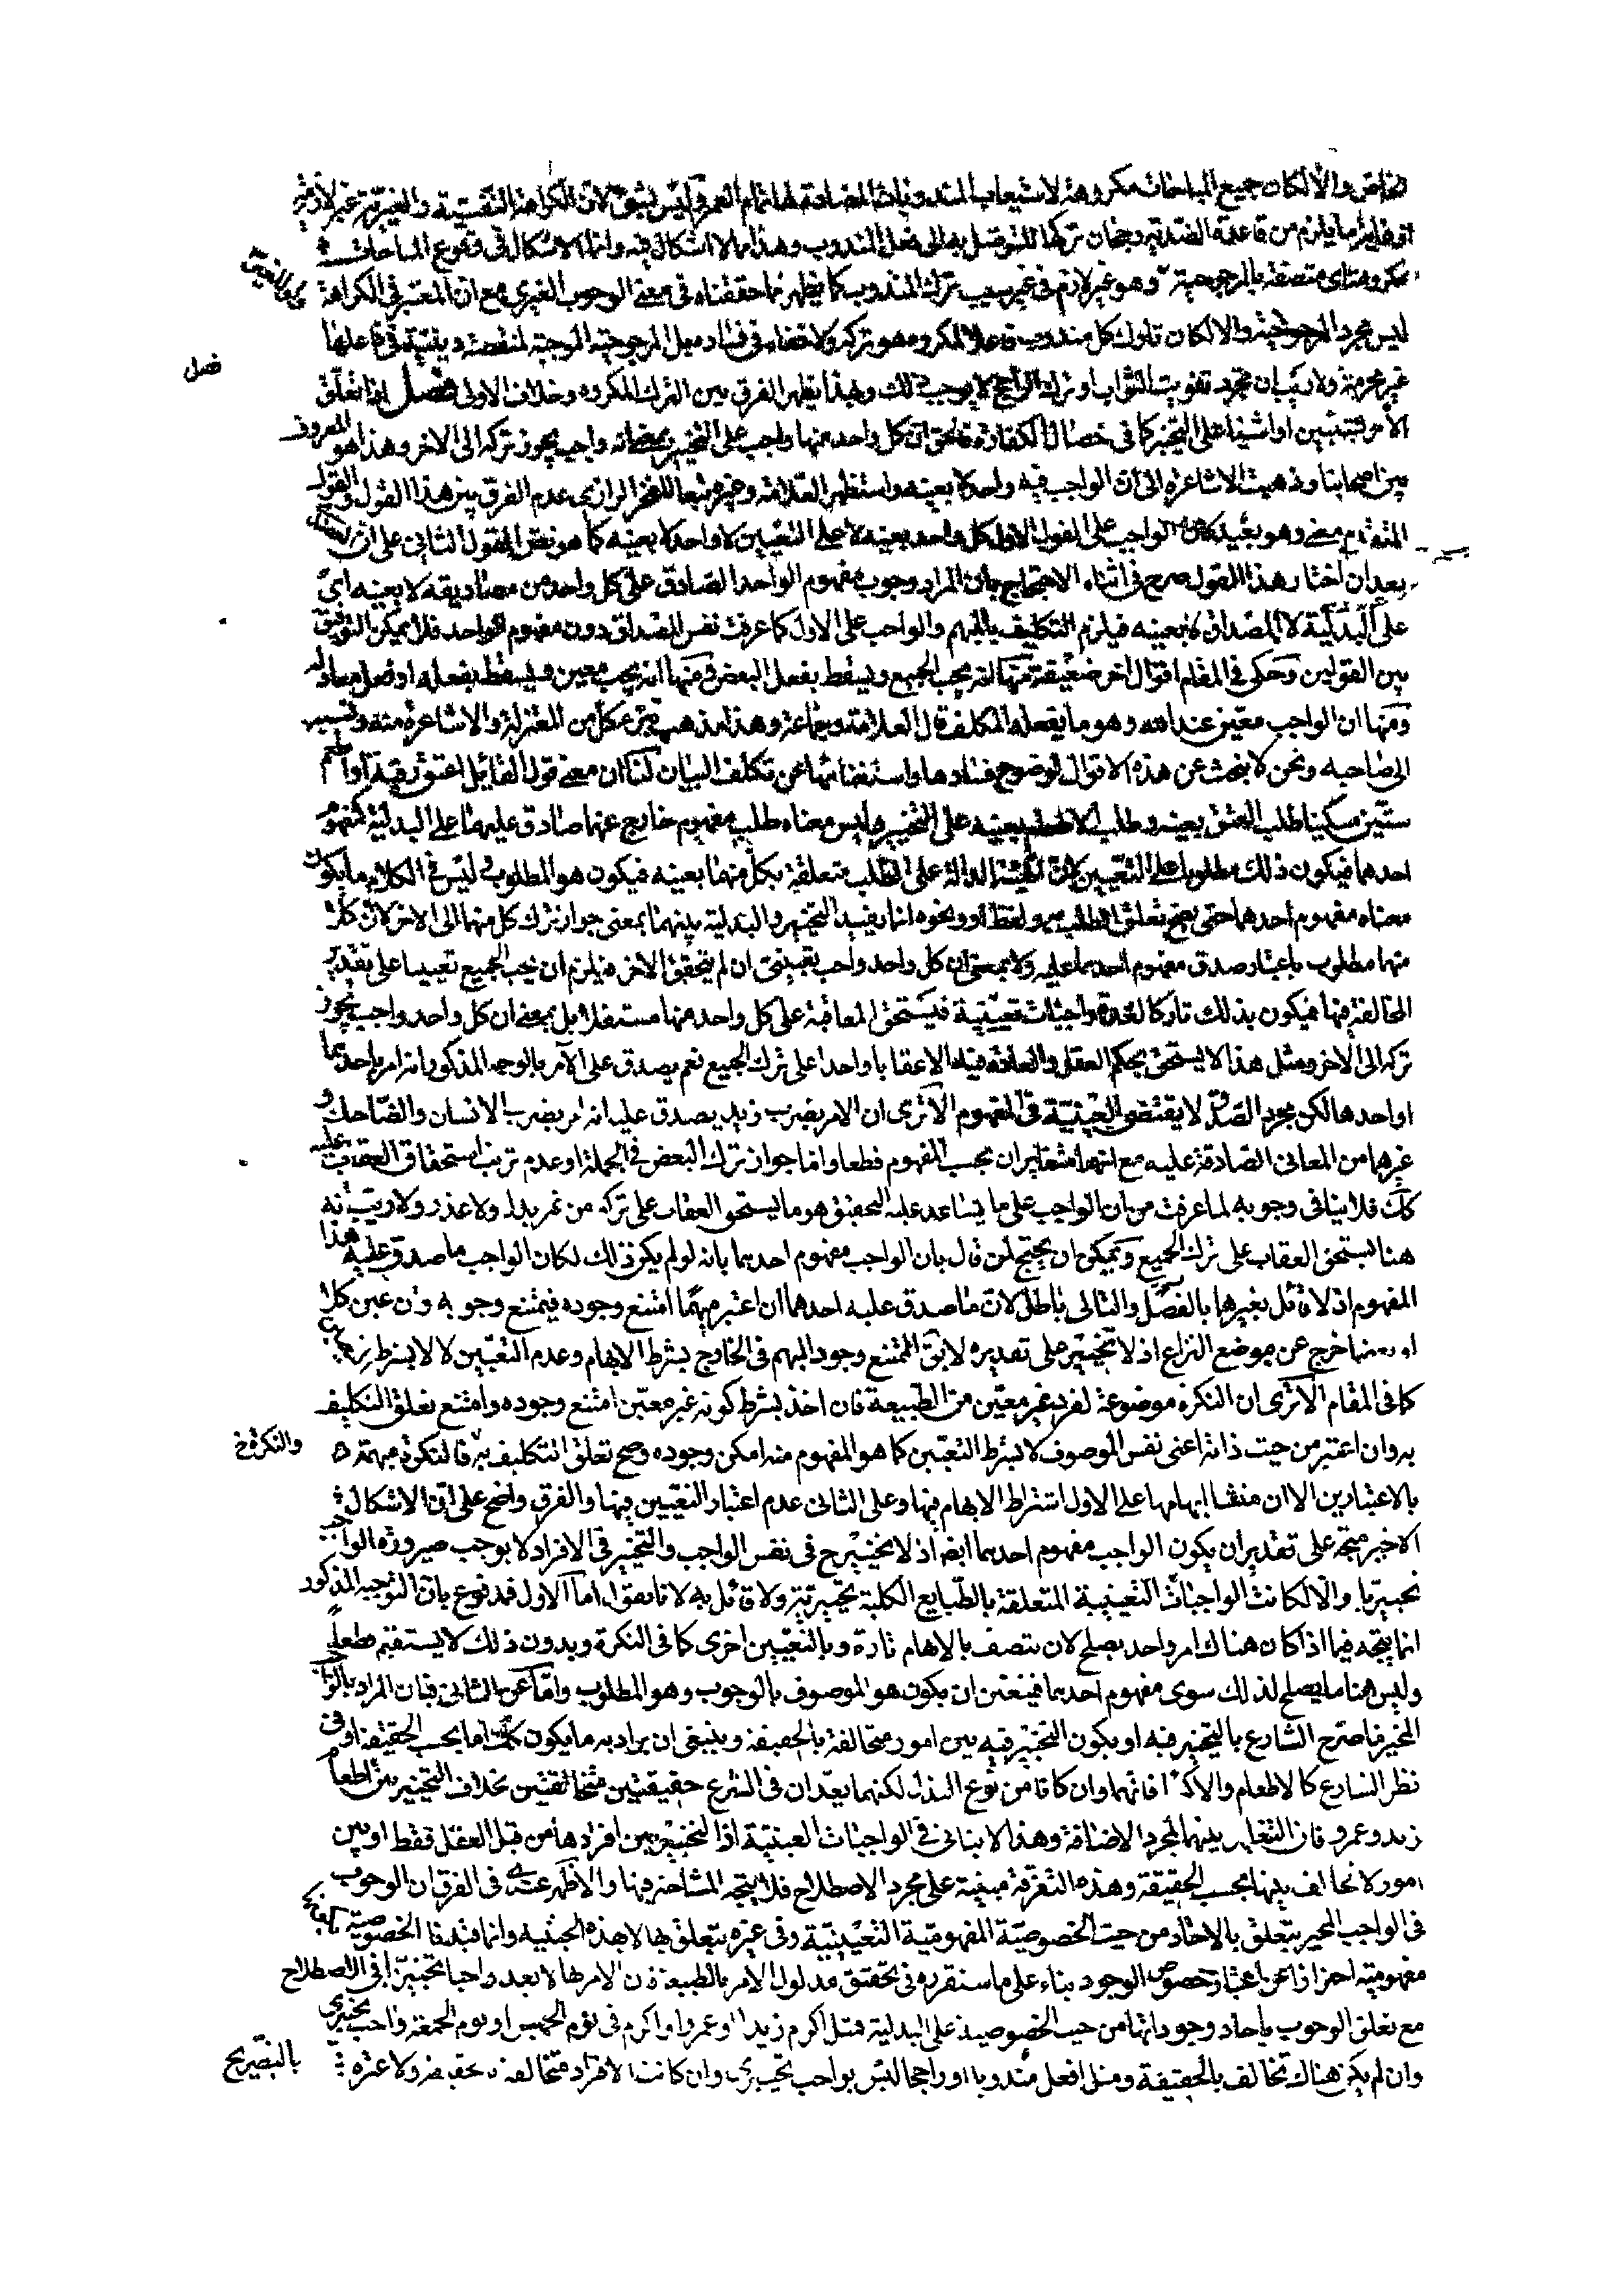 خاص والا لكان جميع المباحات مكروهة لاستيعاب المندوبات المضادة لها تمام العمر وليس بشئ لان الكراهة النفسية والغيرية غير لازمة
من قاعدة الضد رجحان تركها للتوصل به الى فعل المندوب وهذا مما لا اشكال فيه وانما الاشكال فى وقوع المباحات
مكروهة اى متصفة بالمرجوحية وهو غير لازم فى غير سبب ترك المندوب كما يظهر مما حققناه فى معنى الوجوب الغيرى مع ان المعتبر فى الكراهة
ليس مجرد المرجوحية والا لكان تارك كل مندوب فاعلا لمكروه هو تركه ولا خفاء فى فساده بل المرجوحية الموجبة لمنقصة دينية فى فاعلها
غير محرمة ولا ريب ان مجرد تفويت الثواب او ترك الراجح لا يوجب ذلك وبهذا يظهر الفرق بين الترك المكروه وخلاف الاولى فصل اذا تعلق
فصل
الأمر بشيئين او اشياء على التخيير كما فى خصال الكفارة فالحق ان كل واحد منها واجب على التخيير بمعنى انه واجب يجوز تركه الى الاخر وهذا هو المعروف
بين اصحابنا وذهبت الاشاعرة الى ان الواجب فيه واحد لا بعينه واستظهر العلامة وغيره تبعا للفخر الرازى عدم الفرق بين هذا القول والقول
المتقدم معنى وهو بعيد لان الواجب على القول الاول كل واحد بعينه لا على التعيين لا واحد لا بعينه كما هو نص القول الثانى على ان
بعد ان اختار هذا القول صرح فى اثناء الاحتجاج بان المراد وجوب مفهوم الواحد الصادق على كل واحد من مصاديقه لا بعينه اى
على البدلية لا المصداق لا بعينه فيلزم التكليف بالمبهم والواجب على الاول كما عرفت نفس المصداق دون مفهوم الواحد فلا يمكن التوفيق
بين القولين وحكى فى المقام اقوال اخر ضعيفة منها انه يجب الجميع ويسقط بفعل البعض ومنها انه يجب معين ويسقط بفعله او فعل معادله
ومنها ان الواجب معين عند الله وهو ما يفعله المكلف قال العلامة وجماعة وهذا مذهب تبرء كل من المعتزلة والاشاعرة منه ونسبه
الى صاحبه ونحن لا نبحث عن هذه الاقوال لوضوح فسادها واستغنائها عن تكلف البيان لنا ان معنى قول القائل اعتق رقبة او اطعم
ستين مسكينا طلب العتق بعينه وطلب الاطعام بعينه على التخيير وليس معناه طلب مفهوم خارج عنها صادق عليهما على البدلية كمفهوم
احدهما فيكون ذلك مطلوبا على التعيين لان الهيئة الدالة على الطلب متعلقة بكل منهما بعينه فيكون هو المطلوب وليس فى الكلام ما يكون
معناه مفهوم احدهما حتى يصح تعلق الطلب به ولفظ او ونحوه انما يفيد التخيير والبدلية بينهما بمعنى جواز ترك كل منهما الى الاخر لا ان كلا
منهما مطلوب باعتبار صدق مفهوم احدهما عليه ولا بمعنى ان كل واحد واجب تعيينى ان لم يتحقق الاخر فيلزم ان يجب الجميع تعيينا على تقدير
المخالفة فيها فيكون بذلك تاركا لعدة واجبات تعيينية فيستحق المعاقبة على كل واحد منها مستقلا بل بمعنى ان كل واحد واجب يجوز
تركه الى الاخر ومثل هذا لا يستحق بحكم العقل والعادة فيه الا عقابا واحدا على ترك الجميع نعم يصدق على الآمر بالوجه المذكور انه امر باحدهما
او احدها لكن مجرد الصدق لا يقتضى العينية فى المفهوم الا ترى ان الامر بضرب زيد يصدق عليه انه امر بضرب الانسان والضاحك و
غيرها من المعانى الصادقة عليه مع انها متغايران بحسب المفهوم قطعا واما جواز ترك البعض فى الجملة او عدم ترتب استحقاق العقاب عليه
كك فلا ينافى وجوبه لما عرفت من ان الواجب على ما يساعد عليه التحقيق هو ما يستحق العقاب على تركه من غير بدل ولا عذر ولا ريب انه
هنا يستحق العقاب على ترك الجميع ويمكن ان يحتج لمن قال بان الواجب مفهوم احدهما بانه لو لم يكن ذلك لكان الواجب ما صدق عليه هذا
المفهوم اذ لا قائل بغيرها بالفصل والتالى باطل لان ما صدق عليه احدهما ان اعتبر مبهما امتنع وجوده فيمتنع وجوبه وان عين كلا
او بعضا خرج عن موضع النزاع اذ لا تخيير على تقديره لا يق الممتنع وجود المبهم فى الخارج بشرط الابهام وعدم التعيين لا لا بشرط
كما فى المقام الا ترى ان النكرة موضوعة لفرد غير معين من الطبيعة فان اخذ بشرط كونه غير معين امتنع وجوده وامتنع تعلق التكليف
به وان اعتبر من حيث ذاته اعنى نفس الموصوف لا بشرط التعيين كما هو المفهوم منه امكن وجوده وصح تعلق التكليف به فالنكرة مبهمة
والنكرة خ
بالاعتبارين الا ان منشأ ابهامها على الاول اشتراط الابهام فيها وعلى الثانى عدم اعتبار التعيين فيها والفرق واضح على ان الاشكال
الاخير متجه على تقدير ان يكون الواجب مفهوم احدهما ايضا اذ لا تخيير ح فى نفس الواجب والتخيير فى الافراد لا يوجب صيرورة الواجب
تخييريا والا لكانت الواجبات التعيينية المتعلقة بالطبايع الكلية تخييرية ولا قائل به لانا نقول اما الاول فمدفوع بان التوجيه المذكور
انما يتجه فيما اذا كان هناك امر واحد يصلح لان يتصف بالابهام تارة وبالتعيين اخرى كما فى النكرة وبدون ذلك لا يستقيم قطعا
وليس هنا ما يصلح لذلك سوى مفهوم احدهما فيتعين ان يكون هو الموصوف بالوجوب وهو المطلوب واما عن الثانى فبان المراد بالواجب
المخير ما صرح الشارع بالتخيير فيه او يكون التخيير فيه بين امور متخالفة بالحقيقة وينبغى ان يراد به ما يكون كك اما بحسب الحقيقة او فى
نظر الشارع كالاطعام والاكساء فانهما وان كانا من نوع البذل لكنهما يعدان فى الشرع حقيقتين متخالفتين بخلاف التخيير بين اطعام
زيد وعمرو فان التغاير بينهما لمجرد الاضافة وهذا لا يتاتى فى الواجبات العينية اذ التخيير بين افرادها من قبل العقل فقط او بين
امور لا تخالف بينها بحسب الحقيقة وهذه التفرقة مبنية على مجرد الاصطلاح فلا يتجه المشاحة فيها والاظهر عندى فى الفرق ان الوجوب
فى الواجب المخير يتعلق بالاحاد من حيث الخصوصية المفهومية التعيينية وفى غيره يتعلق بها لا بهذه الحيثية وانما قيدنا الخصوصية
مفهومية احترازا عن اعتبار خصوص الوجود بناء على ما سنقرره فى تحقيق مدلول الامر بالطبيعة فان الامر بها لا يعد واجبا تخييريا فى الاصطلاح
مع تعلق الوجوب باحاد وجوداتها من حيث الخصوصية على البدلية فمثل اكرم زيدا او عمروا واكرم فى يوم الخميس او يوم الجمعة واجب تخييرى
وان لم يكن هناك تخالف بالحقيقة ومثل افعل مندوبا او راجحا ليس بواجب تخييرى وان كانت الافراد متخالفة حقيقة ولا عبرة
بالتصريح